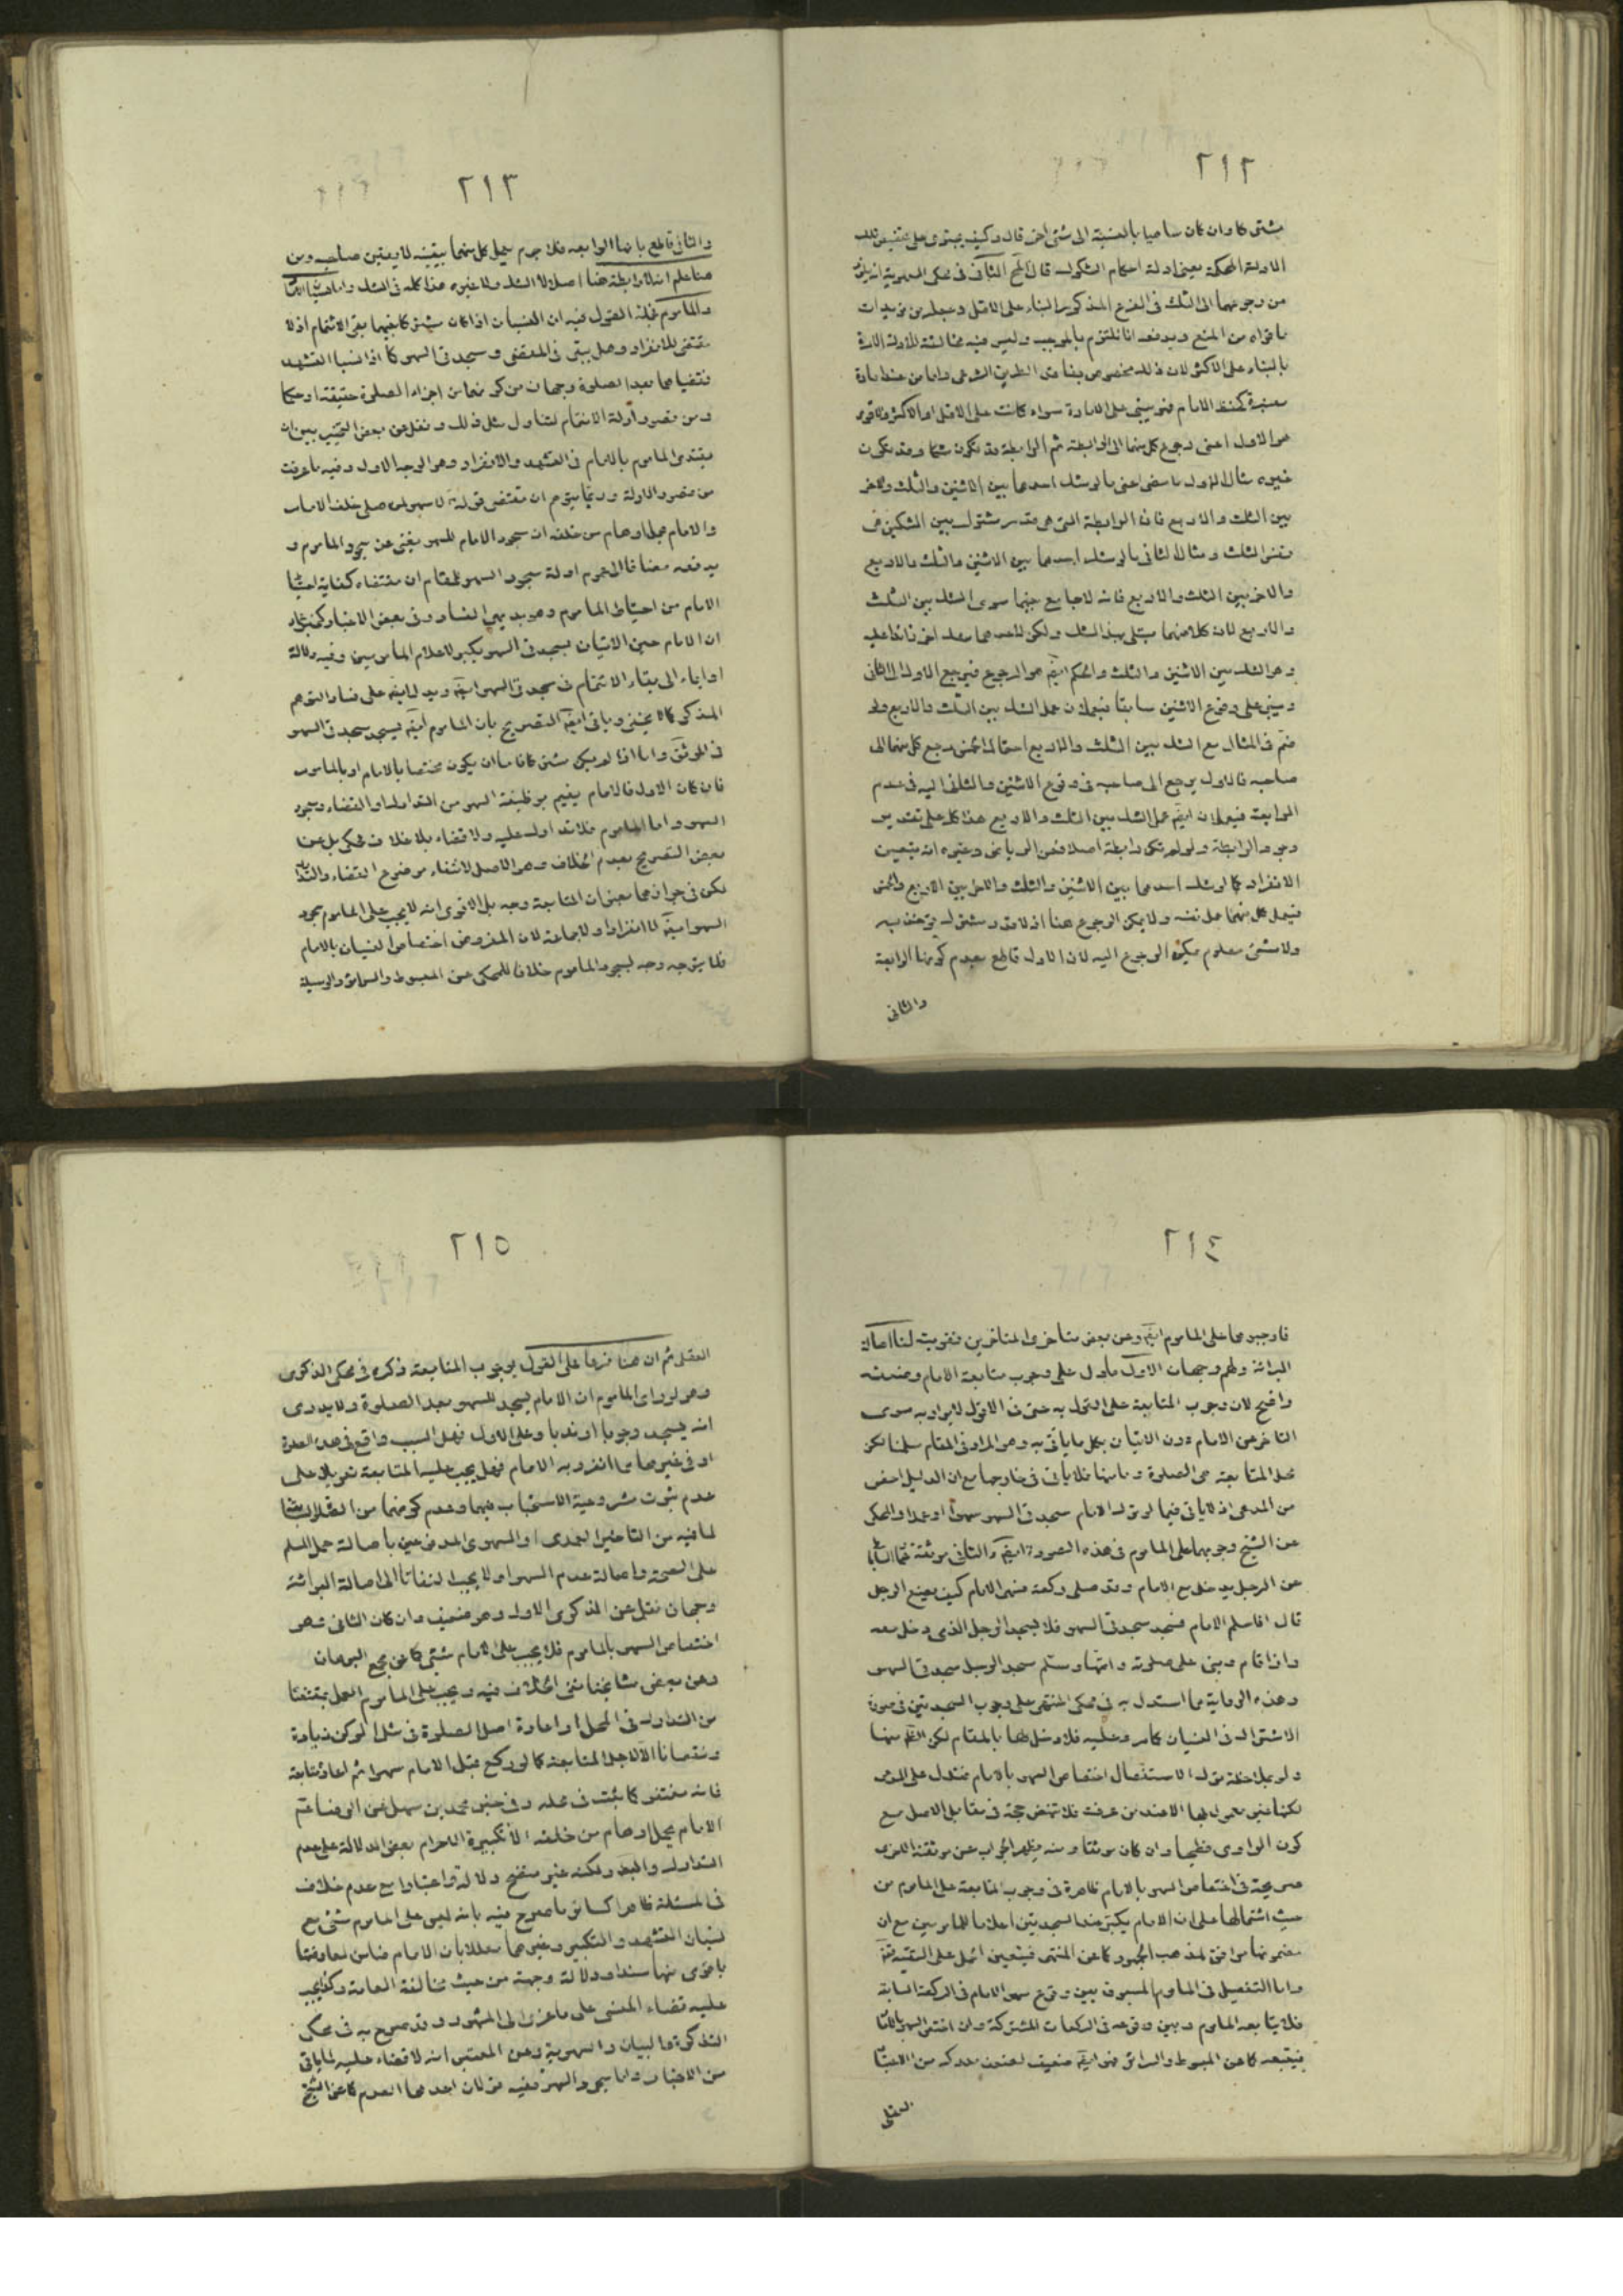 ٢١٢
من وجوعهما الى الشك فى الفرع المذكور البناء على الاقل وجعله من مؤيدات
ما قواه من المنع ويدفعه انا نلتزم بالموجب وليس فيه مخالفة للأدلة الامرة
بالبناء على الاكثر لان ذلك مخصوص بفاقد الطريق الشرعى واما من عنده امارة
معتبرة كحفظ الامام فهو يبنى على الامارة سواء كانت على الاقل او الاكثر فالاقوى
هو الاول اعنى رجوع كل منهما الى الرابطة ثم الرابطة قد تكون شكا وقد تكون
غيره مثال الاول ما مضى اعنى ما لو شك احدهما بين الاثنين والثلث والاخر
بين الثلث والاربع فان الرابطة التى هى قدر مشترك بين الشكين هى
الثلث ومثال الثانى ما لو شك احدهما بين الاثنين والثلث والاربع
والاخر بين الثلث والاربع فانه لا جامع بينهما سوى الشك بين الثلث
والاربع لان كلا منهما مبتلى بهذا الشك ولكن لاحدهما شك اخر زائدا عليه
وهو الشك بين الاثنين والثلث والحكم ايضا هو الرجوع فيرجع الاول الى الثانى
ويبنى على وقوع الاثنين سابقا فيعملان عمل الشك بين الثلث والاربع ولو
ضم فى المثال مع الشك بين الثلث والاربع احتمال الخمس رجع كل منهما الى
صاحبه فالاول يرجع الى صاحبه فى وقوع الاثنين والثانى اليه فى عدم
الرابعة فيعملان ايضا عمل الشك بين الثلث والاربع هذا كله على تقدير
وجود الرابطة ولو لم تكن رابطة اصلا فعن الروض وغيره انه يتعين
الانفراد كما لو شك احدهما بين الاثنين والثلث والاخر بين الاربع والخمس
فيعمل كل منهما عمل نفسه ولا يمكن الرجوع هنا اذ لا قدر مشترك يؤخذ به
ولا شىء معلوم يمكن الرجوع اليه لان الاول قاطع بعدم كونها الرابعة
والثانى
٢١٣
والثانى قاطع بانها الرابعة فلا جرم يعمل كل منهما بيقينه لا بيقين صاحبه ومن
هنا علم انه لا رابطة هنا اصلا لا الشك ولا غيره هذا كله فى الشك واما
والماموم فجملة القول فيه ان النسيان اذا كان مشتركا فيها بقى الائتمام اذ لا
مقتضى للانفراد وهل يبقى فى المقضى وسجدتى السهو كما اذا نسيا التشهد
فقضياها بعد الصلوة وجهان من كونهما من اجزاء الصلوة حقيقة او حكما
ومن قصور ادلة الائتمام لتناول مثل ذلك ونقل عن بعض التخيير بين ان
يقتدى الماموم بالامام فى التشهد والانفراد وهو الوجه الاول وفيه ما عرفت
من قصور الادلة وربما يتوهم ان مقتضى قوله لا سهو لمن صلى خلف الامام
والامام يحمل اوهام من خلفه ان سجود الامام للسهو يغنى عن سجود الماموم و
يدفعه مضافا الى عموم ادلة سجود السهو للمقام ان مقتضاه كفاية احتياط
الامام من احتياط الماموم وهو بديهى الفساد وفى بعض الاخبار كخبر عمار
ان الامام حين الاتيان بسجدتى السهو يكبر لاعلام المامومين وفيه دلالة
او ايماء الى بقاء الائتمام فى سجدتى السهو ايضا ويدل ايضا على فساد التوهم
المذكور كما لا يخفى وياتى ايضا التصريح بان الماموم ايضا يسجد سجدتى السهو
فى الموثق واما اذا لم يكن مشتركا فاما ان يكون مختصا بالامام او بالماموم
فان كان الاول فالامام يقيم بوظيفة السهو من التدارك او القضاء وسجود
السهو واما الماموم فلا تدارك عليه ولا قضاء بلا خلاف محكى بل عن
بعض التصريح بعدم الخلاف وهو الاصل لانتفاء موضوع القضاء والتدارك
لكن فى جواز بعض المتابعة وجه بل الاقوى انه لا يجب على الماموم سجود
السهو ايضا لا انفرادا ولا جماعة لان المفروض اختصاص النسيان بالامام
فلا يتوجه وجه لسجود الماموم خلافا للمحكى عن المبسوط والسرائر والوسيلة
٢١٤
فاوجبوها على الماموم ايضا وعن بعض متاخرى المتاخرين تقويته لنا اصالة
البرائة ولهم وجهان الاول ما دل على وجوب متابعة الامام وضعفه
واضح لان وجوب المتابعة على القول به حتى فى الاقوال لا يراد به سوى
التاخر عن الامام دون الاتيان بكل ما ياتى به وهو المراد فى المقام سلمنا لكن
محل المتابعة هى الصلوة وما منها فلا ياتى فى خارجها مع ان الدليل اخص
من المدعى اذ لا ياتى فيما لو ترك الامام سجدتى السهو سهوا او عمدا والمحكى
عن الشيخ وجوبها على الماموم فى هذه الصورة ايضا والثانى موثقة عمار
عن الرجل يدخل مع الامام وقد صلى ركعة فسهى الامام كيف يصنع الرجل
قال اذا سلم الامام فسجد سجدتى السهو فلا يسجد الرجل الذى دخل معه
واذا قام وبنى على صلوته واتمها وسلم سجد الرجل سجدتى السهو
وهذه الرواية مما استدل به فى محكى المنتهى على وجوب السجدتين فى صورة
الاشتراك فى النسيان كما مر وعليه فلا دخل لها بالمقام لكن الظ منها
ولو بملاحظة ترك الاستفصال اختصاص السهو بالامام فتدل على المدعى
لكنها غير معمول بها الا عند من عرفت فلا تنهض حجة فى مقابل الاصل مع
كون الراوى فطحيا وان كان موثقا ومنه يظهر الجواب عن موثقته الاخرى
صريحة فى اختصاص السهو بالامام ظاهرة فى وجوب المتابعة على الماموم من
حيث اشتمالها على ان الامام يكبر عند السجدتين اعلاما للمامومين مع ان
مضمونها موافق لمذهب الجمهور كما عن المنتهى فيتعين الحمل على التقية
واما التفصيل فى الماموم المسبوق بين وقوع سهو الامام فى الركعة السابقة
فلا يتابعه الماموم وبين وقوعه فى الركعات المشتركة وان اختص السهو بالامام
فيتبعه كما عن المبسوط والسرائر فهو ايضا ضعيف لضعف مدركه من الاعتبار
العقلى
٢١٥
العقلى ثم ان هنا فرعا على القول بوجوب المتابعة ذكره فى محكى الذكرى
وهو لو راى الماموم ان الامام يسجد للسهو بعد الصلوة ولا يدرى
انه يسجد وجوبا او ندبا وعلى الاول فهل السبب واقع فى هذه الصلوة
او فى غيرها مما انفرد به الامام فهل يجب عليه المتابعة تعويلا على
عدم ثبوت مشروعية الاستحباب فيها وعدم كونها من
لما فيه من التاخير العمدى او السهوى المدفوعين باصالة حمل المسلم
على الصحة واصالة عدم السهو او لا يجب التفاتا الى اصالة البرائة
وجهان نقل عن الذكرى الاول وهو ضعيف وان كان الثانى وهو
اختصاص السهو بالماموم فلا يجب على الامام شىء كما عن مجمع البرهان
وعن بعض مشايخنا نفى الخلاف فيه ويجب على الماموم العمل بمقتضى
من التدارك فى المحل او اعادة اصل الصلوة فى مثل الركن زيادة
ونقصانا الا لاجل المتابعة كما لو ركع قبل الامام سهوا ثم اعاد متابعة
فانه مغتفر كما ثبت فى محله وفى خبر محمد بن سهل عن الرضا عليه
الامام يحمل اوهام من خلفه الا تكبيرة الاحرام بعض الدلالة على عدم
التدارك ولكنه غير متضح دلالة واعتبارا مع عدم خلاف
فى المسئلة ظاهرا كسائر ما صرح فيه بانه ليس على الماموم شىء مع
نسيان التشهد والتكبير وغيرهما معللا بان الامام ضامن لمعارضتها
باقوى منها سندا ودلالة وجهة من حيث مخالفة العامة وكذا يجب
عليه قضاء المنسى على ما عزى الى المشهور وقد صرح به فى محكى
التذكرة والبيان والمهدوية وعن المعتبر انه لا قضاء عليه لما ياتى
من الاخبار واما سجود السهو ففيه قولان احدهما العدم كما عن الشيخ